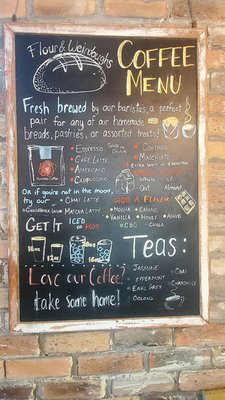 Flour & Weirdoughs
COFFEE
MENU
Fresh brewed by our barista's, a perfect
pair for any of our homemade
breads, pastries, or assorted treats!
Espresso
Cafe Latte
Americano
Cappuccino
Cortado
Macchiato
Or if you're not in the mood,
try our
Chai Latte
Matcha Latte
ADD A
Oat
Almond
Mocha
Caramel
Vanilla
Honey
Agave
CBD
GET IT ICED or HOT
12oz
16oz
20oz
Teas:
Jasmine
Peppermint
Earl Grey
Oolong
Chai
Chamomile
Love our Coffee?
take some home!